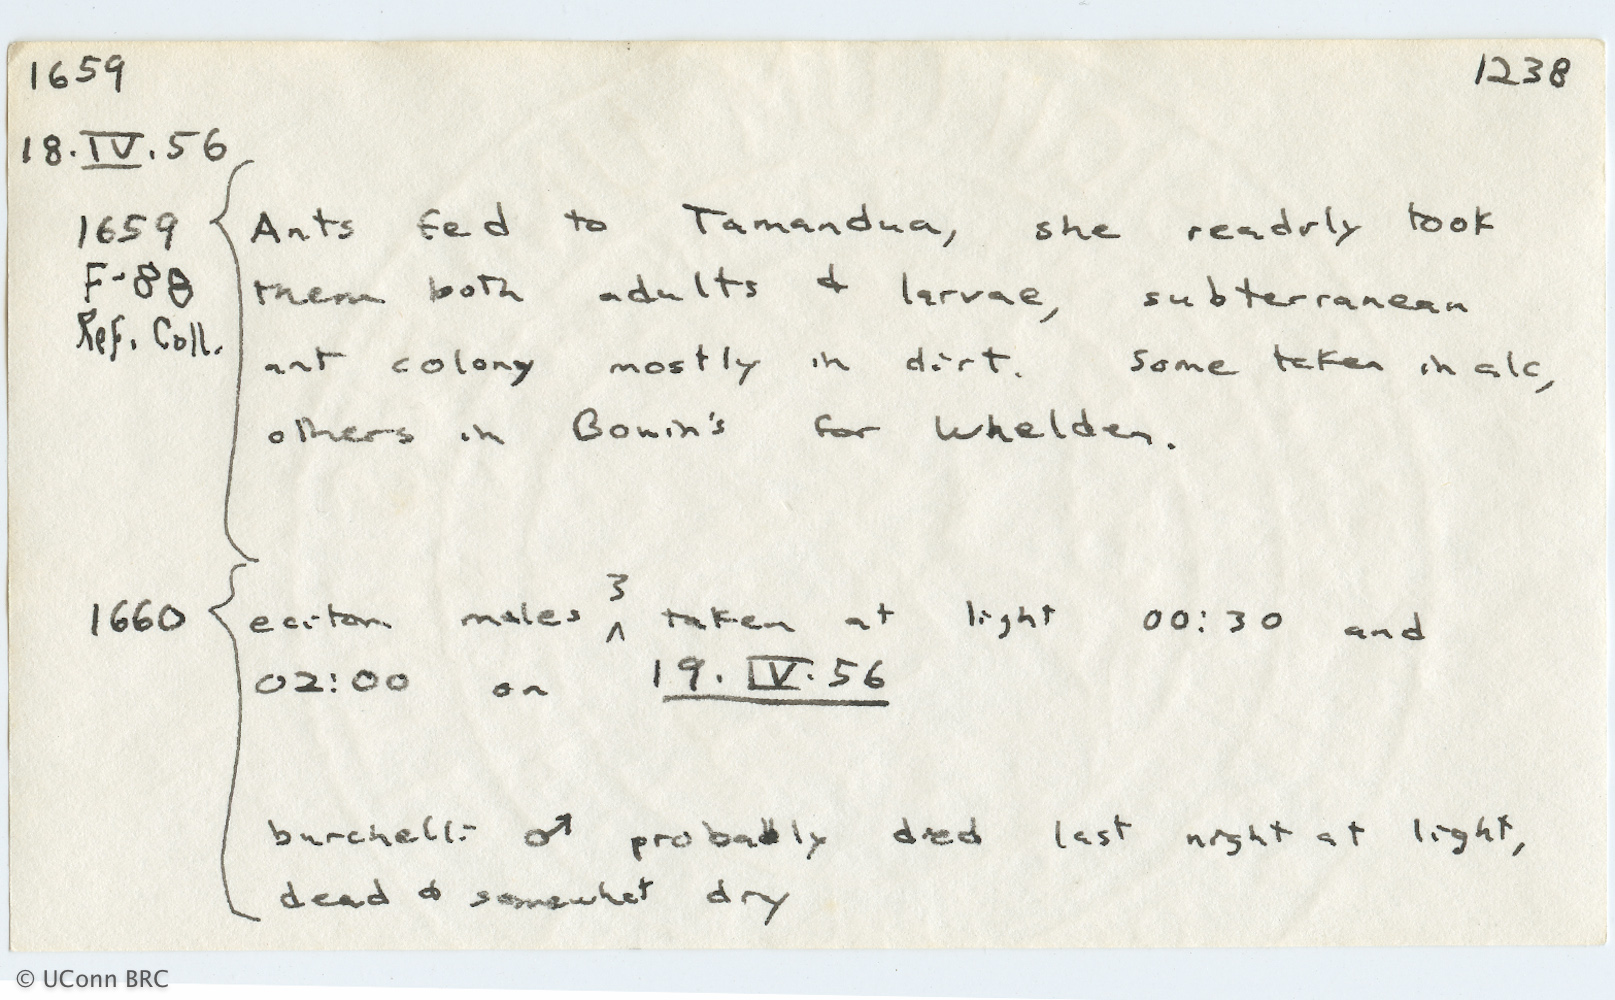 1659 1238
18.IV.56
1659 Ants fed to Tamandua, she readily took
F-88 them both adults & larvae, subterranean
Ref. Coll. ant colony mostly in dirt. Some taken in alc,
others in Bouin's for Whelden.
1660 eciton males ^3 taken at light 00:30 and
02:00 on 19.IV.56
burchelli ♂ probably died last night at light,
dead & somewhat dry
© UConn BRC